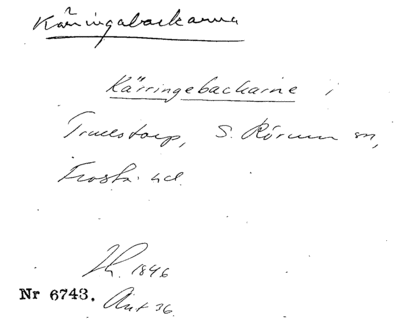 Käringabackarna
Kärringebackarne i
Truelstorp, S. Rörum sn,
Frosta hd.
1846
Nr 6743. Ant 36.